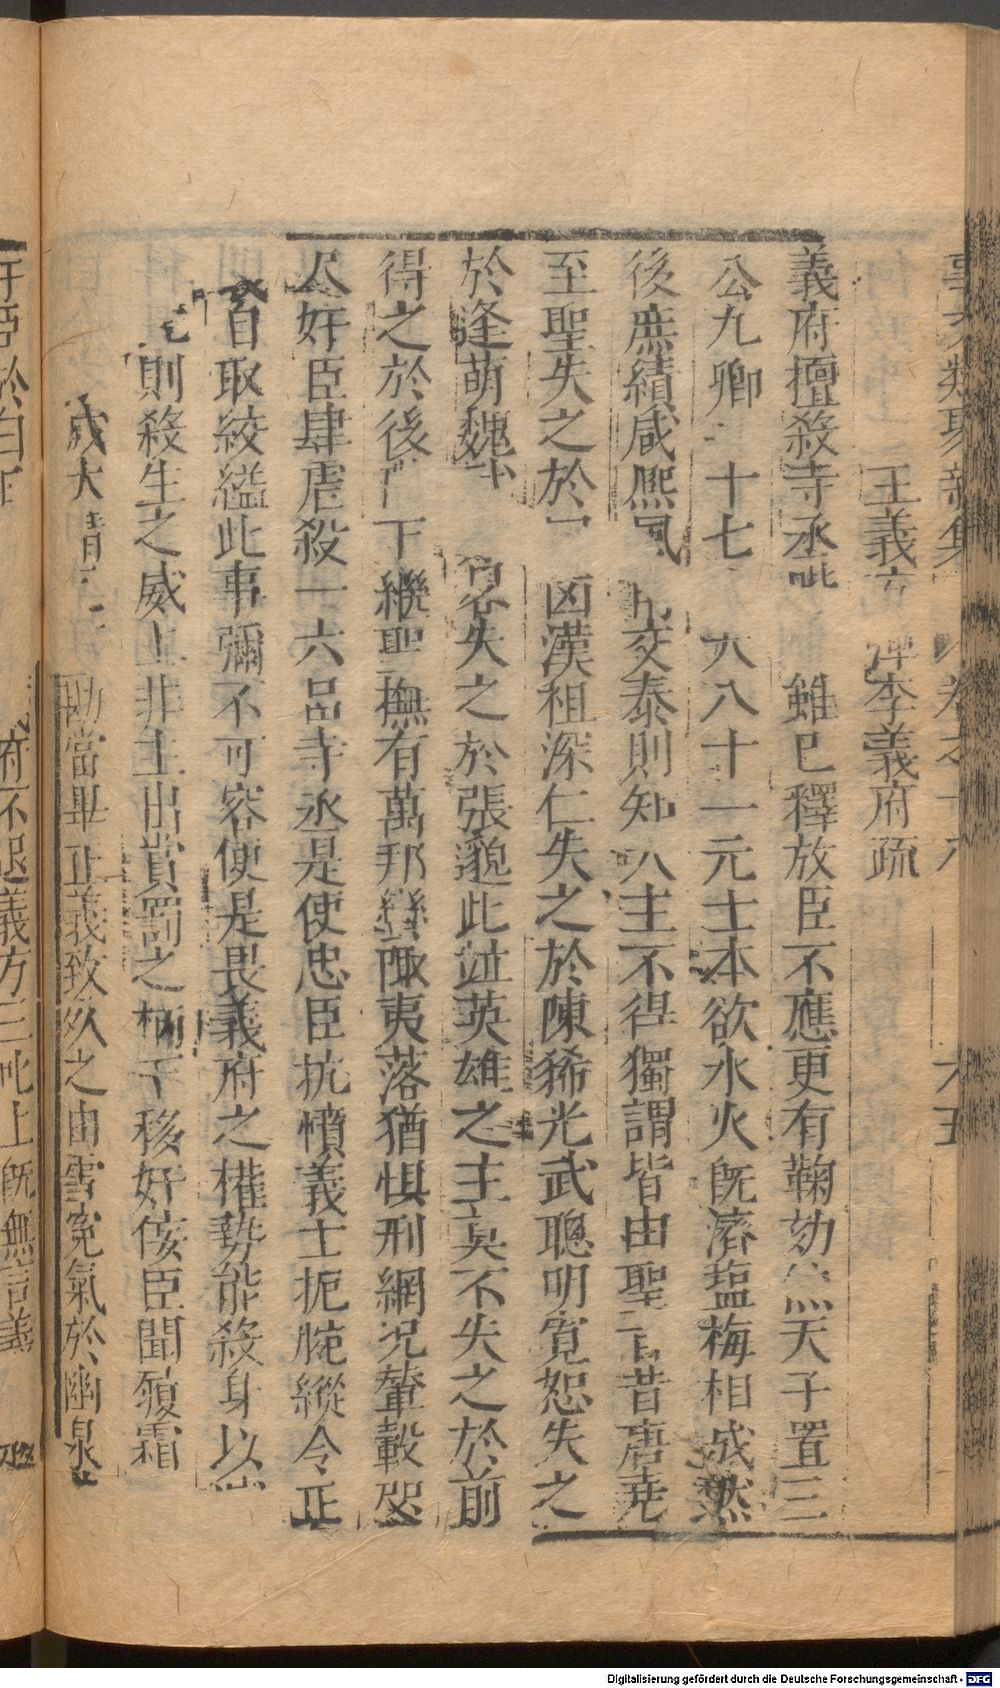 王義方 彈李義府疏
義府擅殺寺丞 雖已釋放臣不應更有鞠劾 天子置三
公九卿 十七 大八十一元士本欲水火既濟塩梅相成然
後庶績咸熙風 交泰則知人主不得獨 皆由聖旨昔唐堯
至聖失之於 凶漢祖深仁失之於陳豨光武聰明寛恕失之
於逢萌魏 失之於張邈此並英雄之主莫不失之於前
得之於後 下繼聖撫有萬邦蠻陬夷落猶惧刑網况輦轂咫
尺奸臣肆虐殺一六品寺丞是使忠臣抗憤義士扼腕縱令正
自取絞縊此事彌不可容便是畏義府之權勢能殺身以
則殺生之威上非主出賞罰之柄下移奸佞臣聞履霜
勘當畢正義致死之由雪寃氣於幽泉
奸臣於白 府不退義方三叱上既無言義
六五
Digitalisierung gefördert durch die Deutsche Forschungsgemeinschaft - DFG